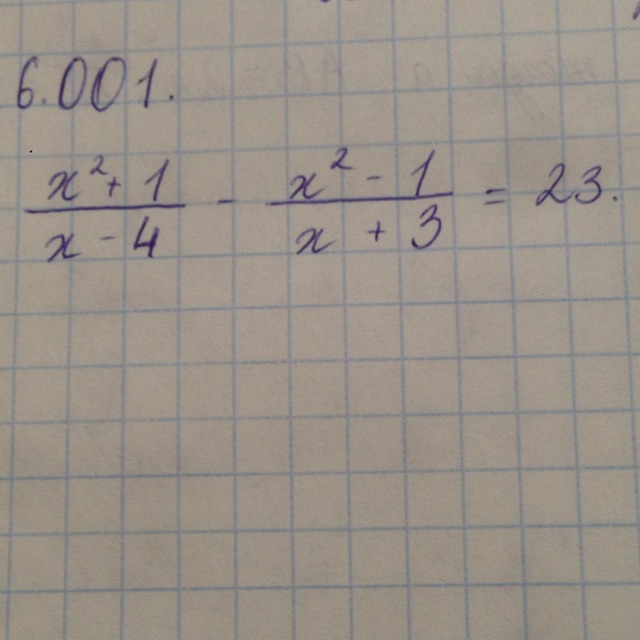 6.001.
x²+1/x-4 - x²-1/x+3 = 23.